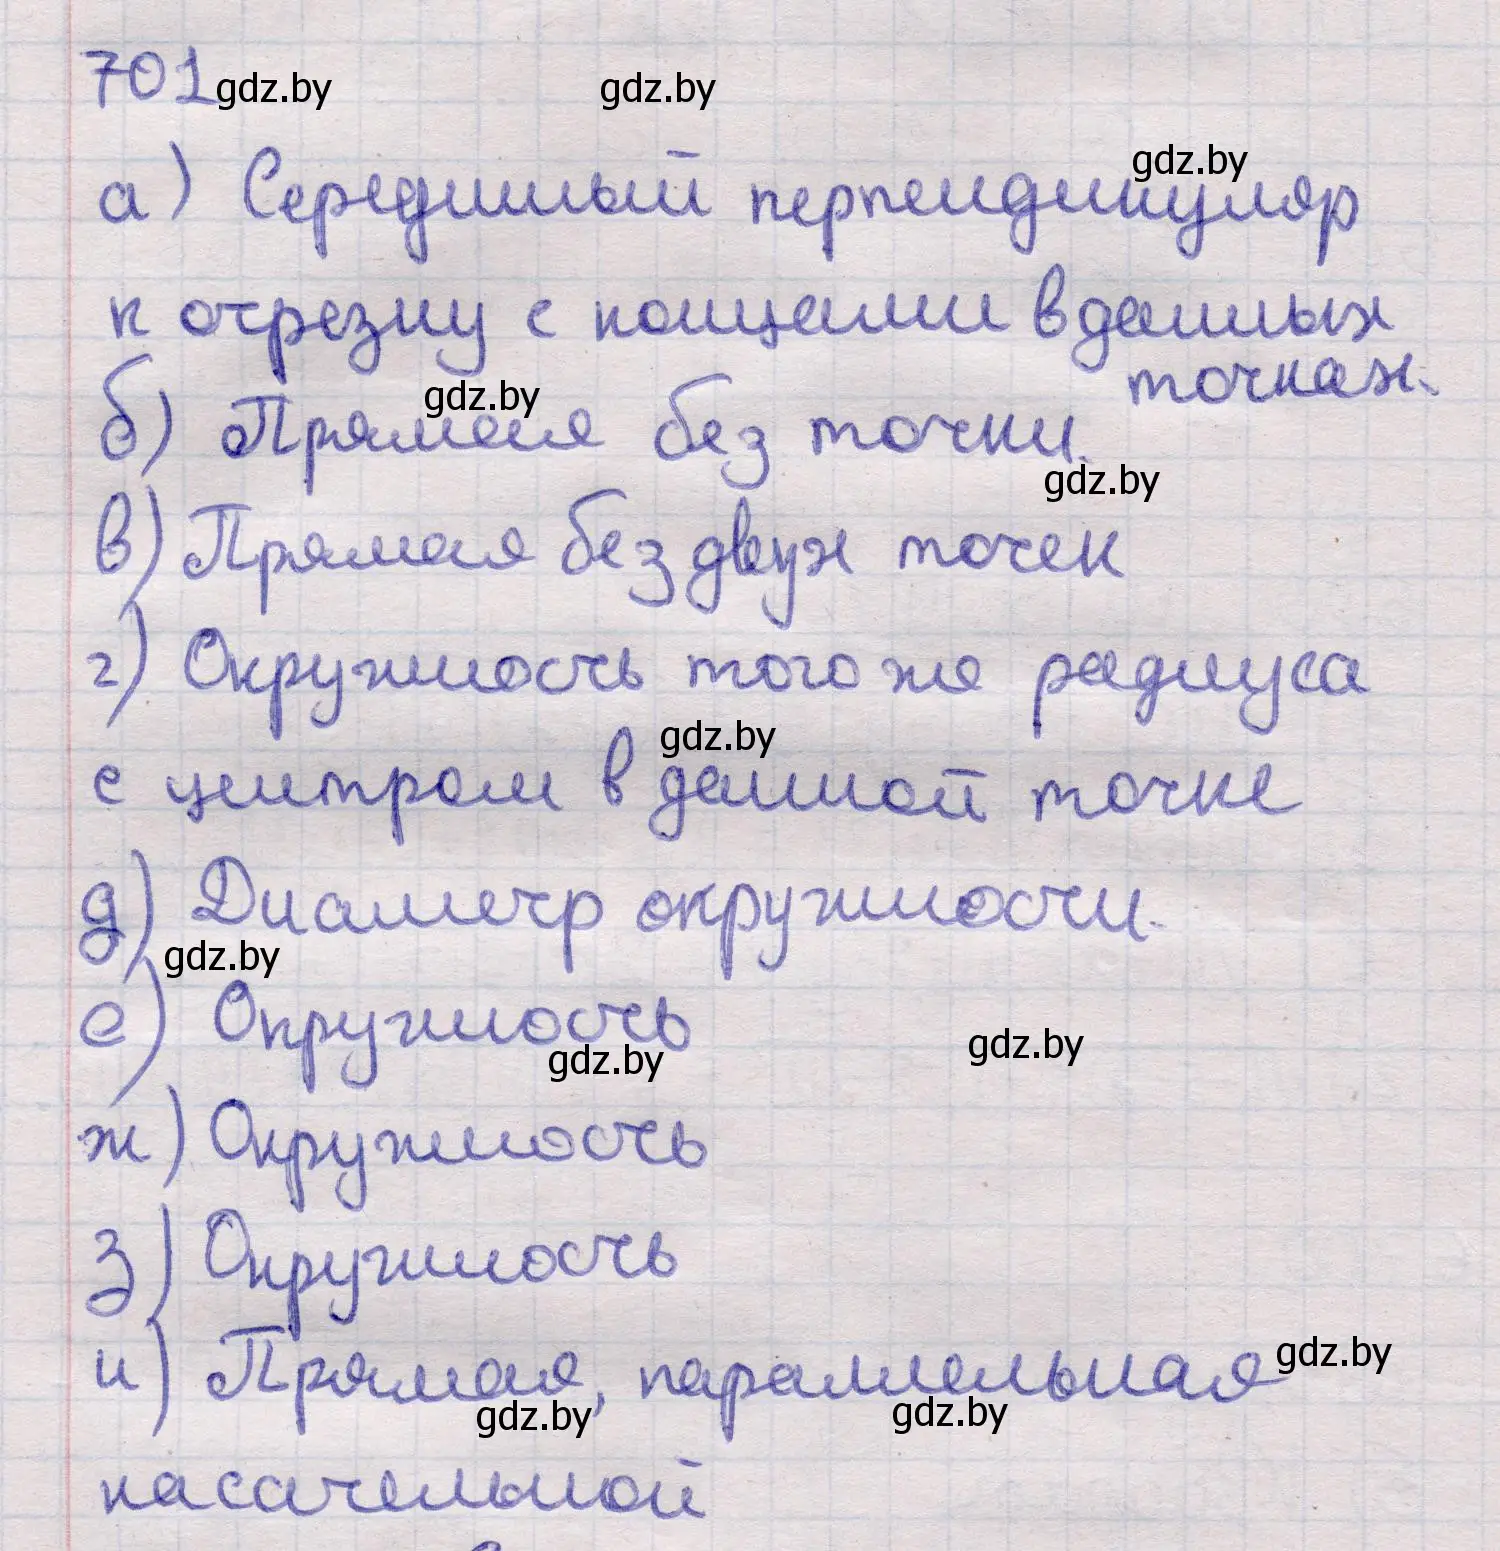 701 gdz.by gdz.by
а) Серединный перпендикуляр gdz.by
к отрезку с концами в данных
точках.
б) Прямая без точки. gdz.by
gdz.by
в) Прямая без двух точек
г) Окружность того же радиуса
gdz.by
с центром в данной точке
д) Диаметр окружности.
gdz.by
е) Окружность
gdz.by gdz.by
ж) Окружность
з) Окружность
и) Прямая, параллельная gdz.by
gdz.by gdz.by
касательной